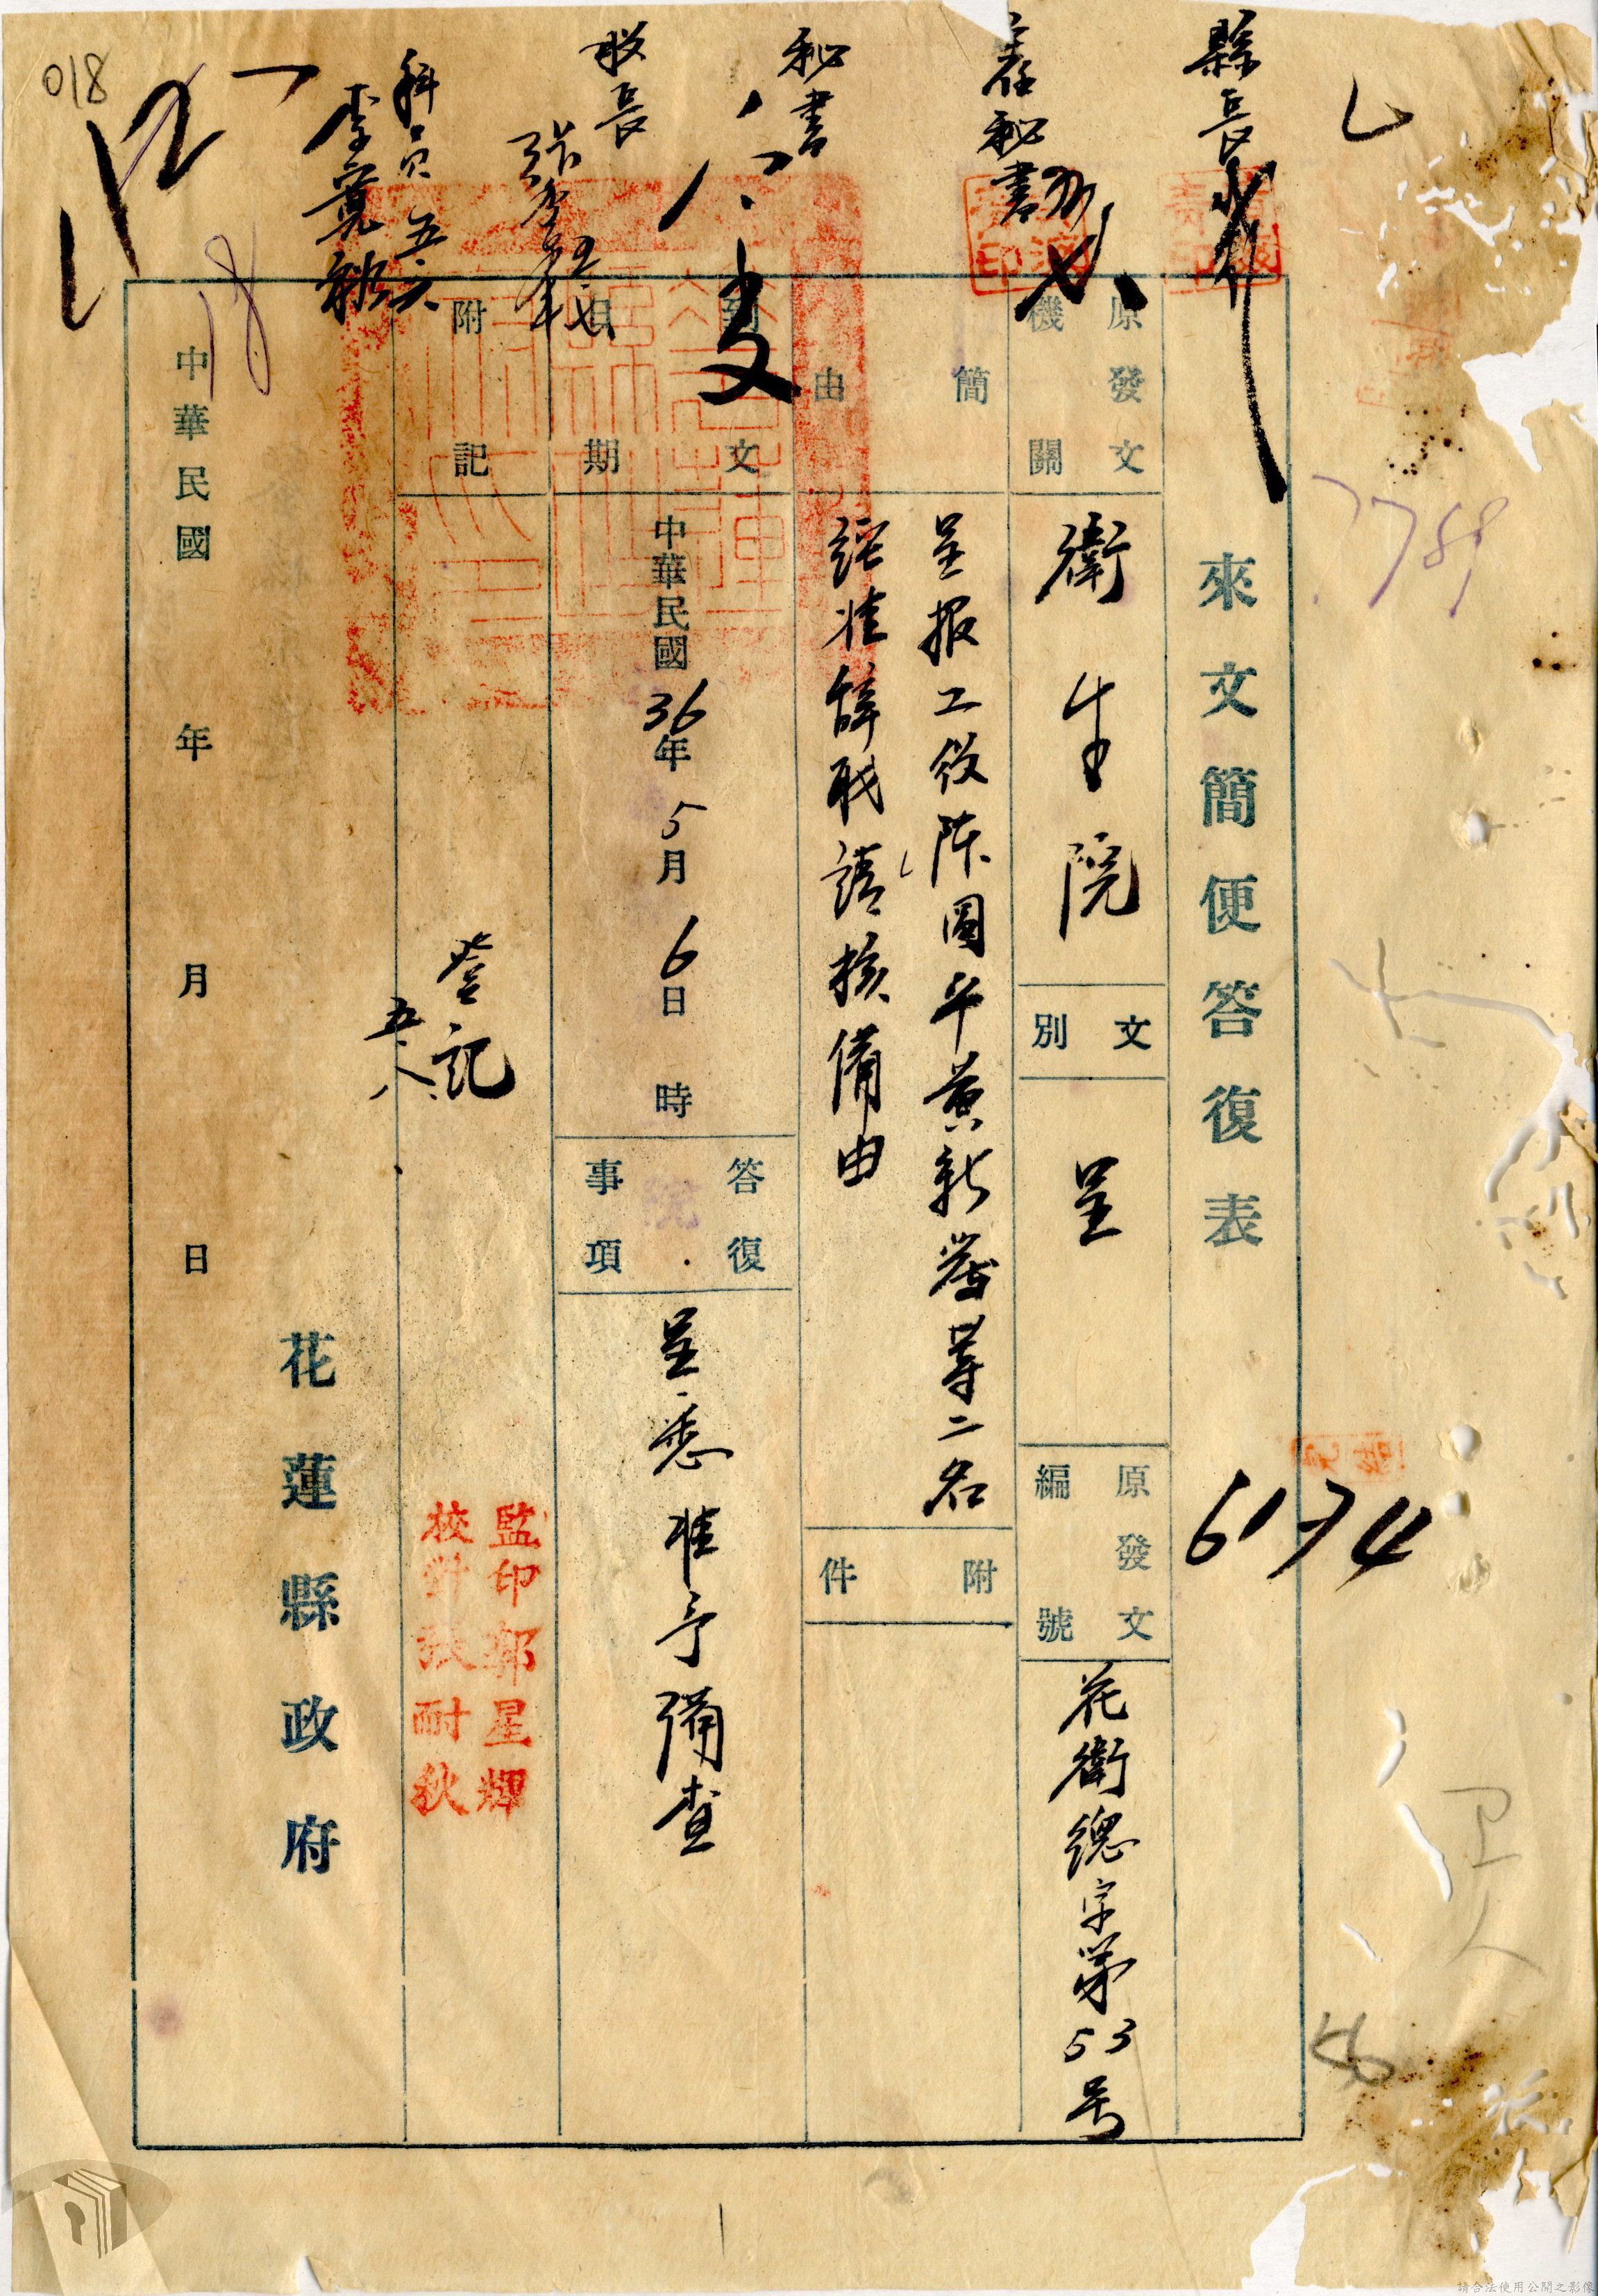 018
縣長
秘書
秘書
科員 五.六
來文簡便答復表
6174
原發文機關
衛生院
文別
呈
原發文編號
花衛總字第53号
簡由
呈报工役陈圆平黃新發等二名
經准辞职請核備由
附件
到文日期
中華民國36年5月6日 時
答復事項
呈悉准予備查
附記
登記
五.八.
監印郭星輝
校對張耐秋
花蓮縣政府
中華民國 年 月 日
請合法使用公開之影像